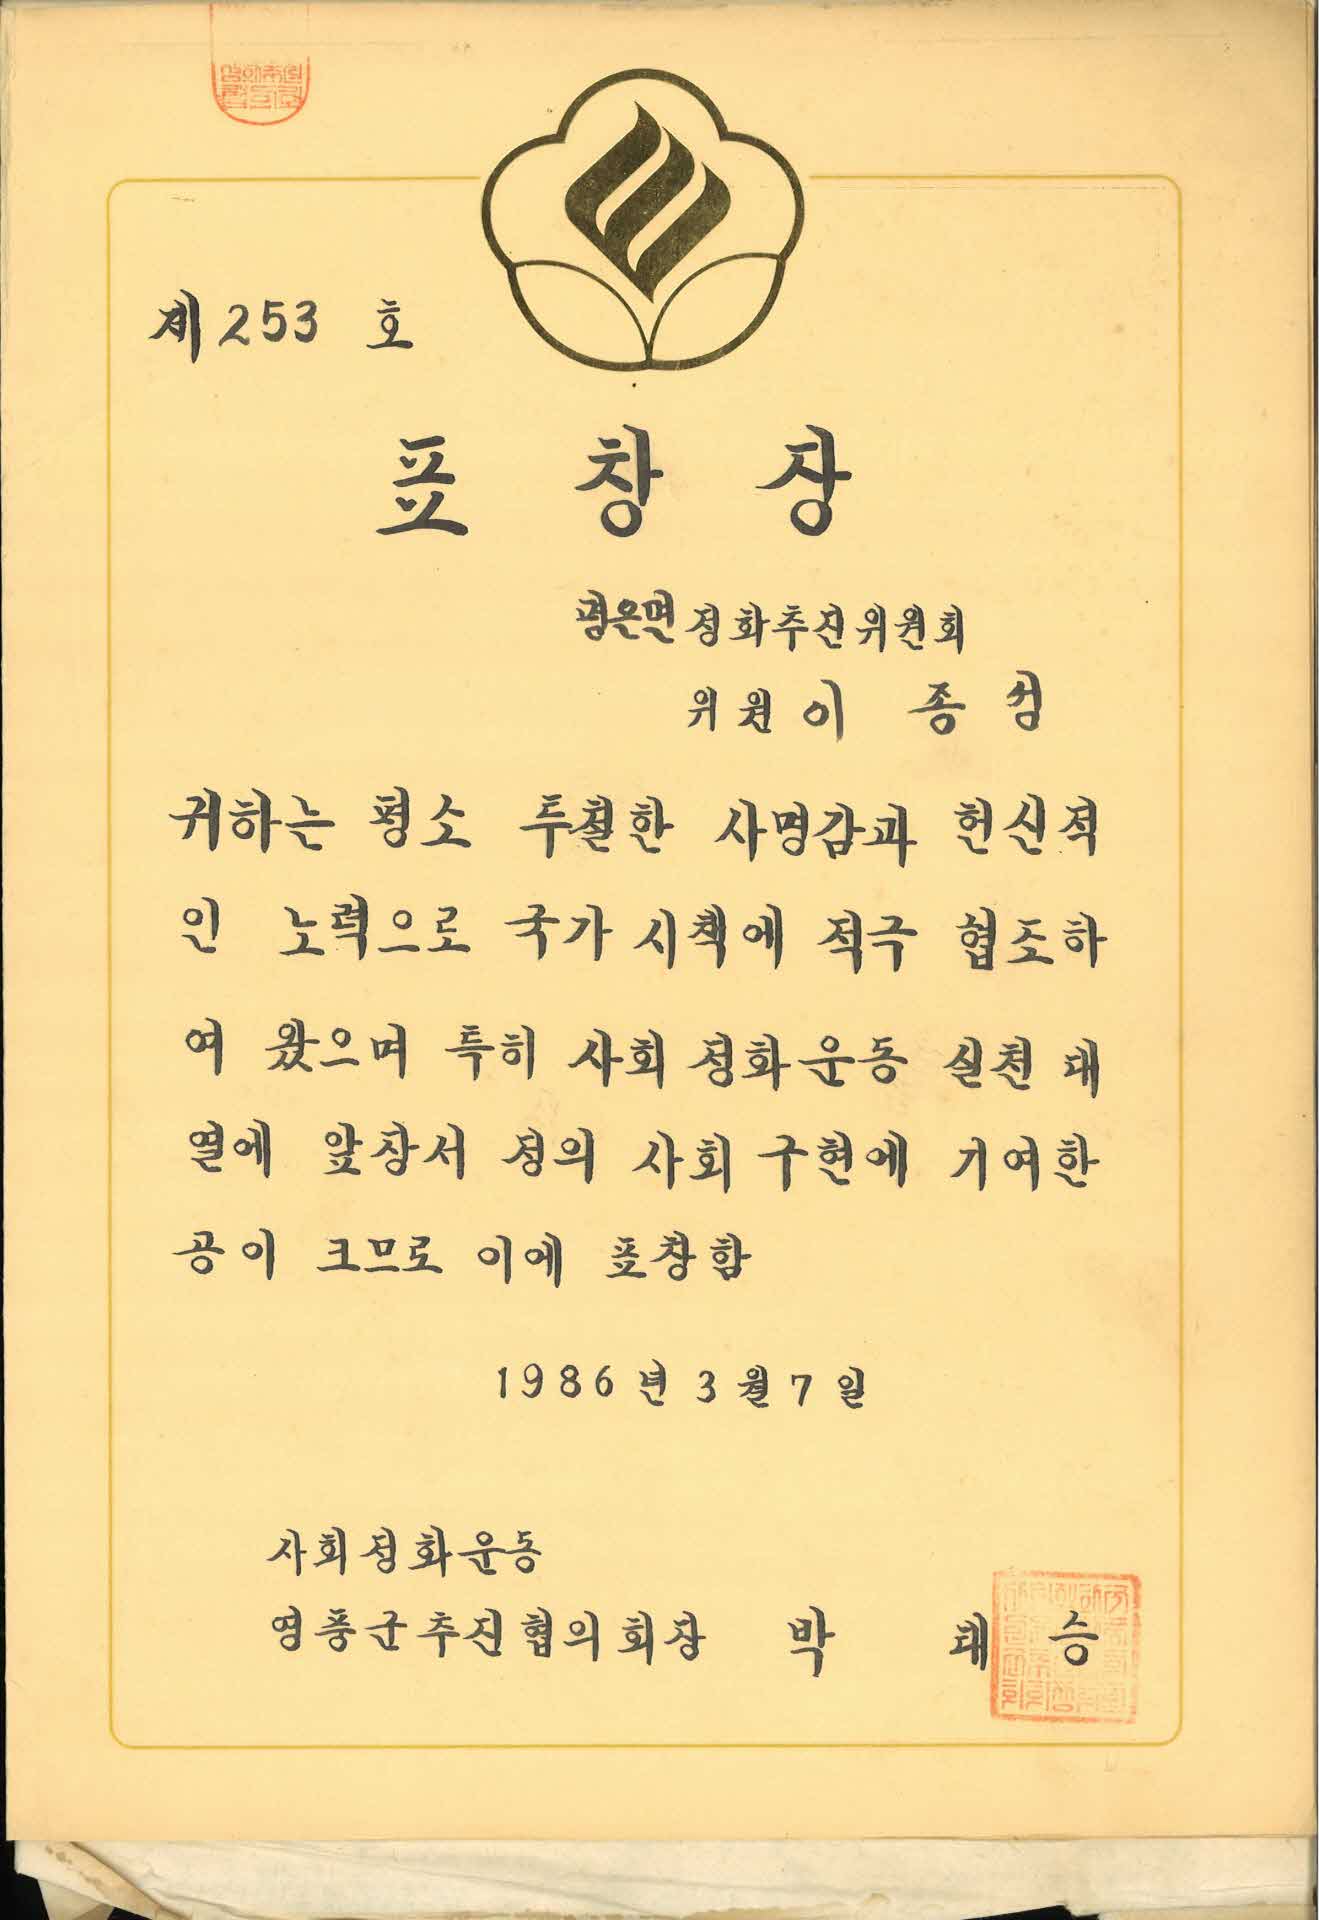 제253 호
표 창 장
평은면 정화추진위원회
위원 이 종 섭
귀하는 평소 투철한 사명감과 헌신적
인 노력으로 국가 시책에 적극 협조하
여 왔으며 특히 사회 정화운동 실천 대
열에 앞장서 정의 사회 구현에 기여한
공이 크므로 이에 표창함
1986 년 3 월 7 일
사회정화운동
영풍군추진협의회장 박 태 승